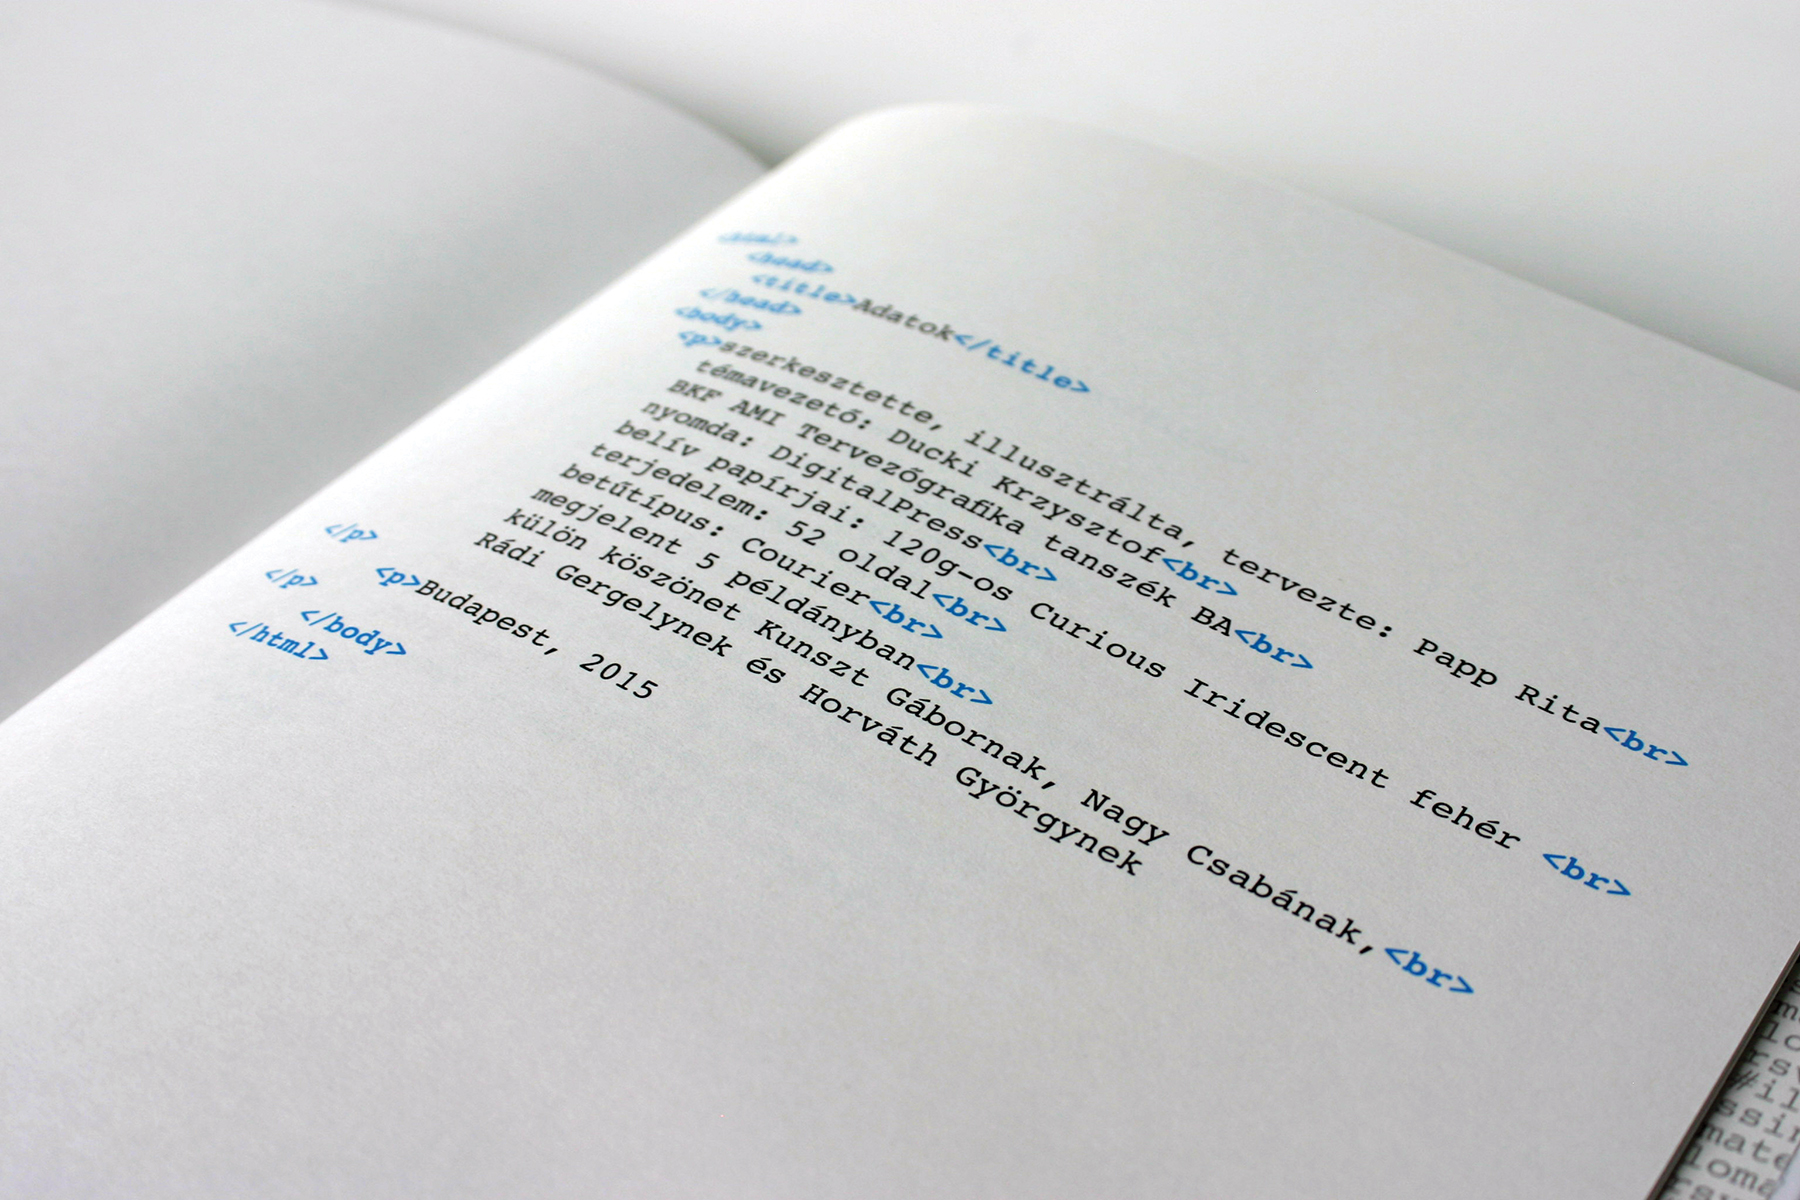 <html>
<head>
<title>Adatok</title>
</head>
<body>
<p>szerkesztette, illusztrálta, tervezte: Papp Rita<br>
témavezető: Ducki Krzysztof<br>
BKF AMI Tervezőgrafika tanszék BA<br>
nyomda: DigitalPress<br>
belív papírjai: 120g-os Curious Iridescent fehér <br>
terjedelem: 52 oldal<br>
betűtípus: Courier<br>
megjelent 5 példányban<br>
külön köszönet Kunszt Gábornak, Nagy Csabának,<br>
Rádi Gergelynek és Horváth Györgynek
</p>
<p>Budapest, 2015
</p>
</body>
</html>